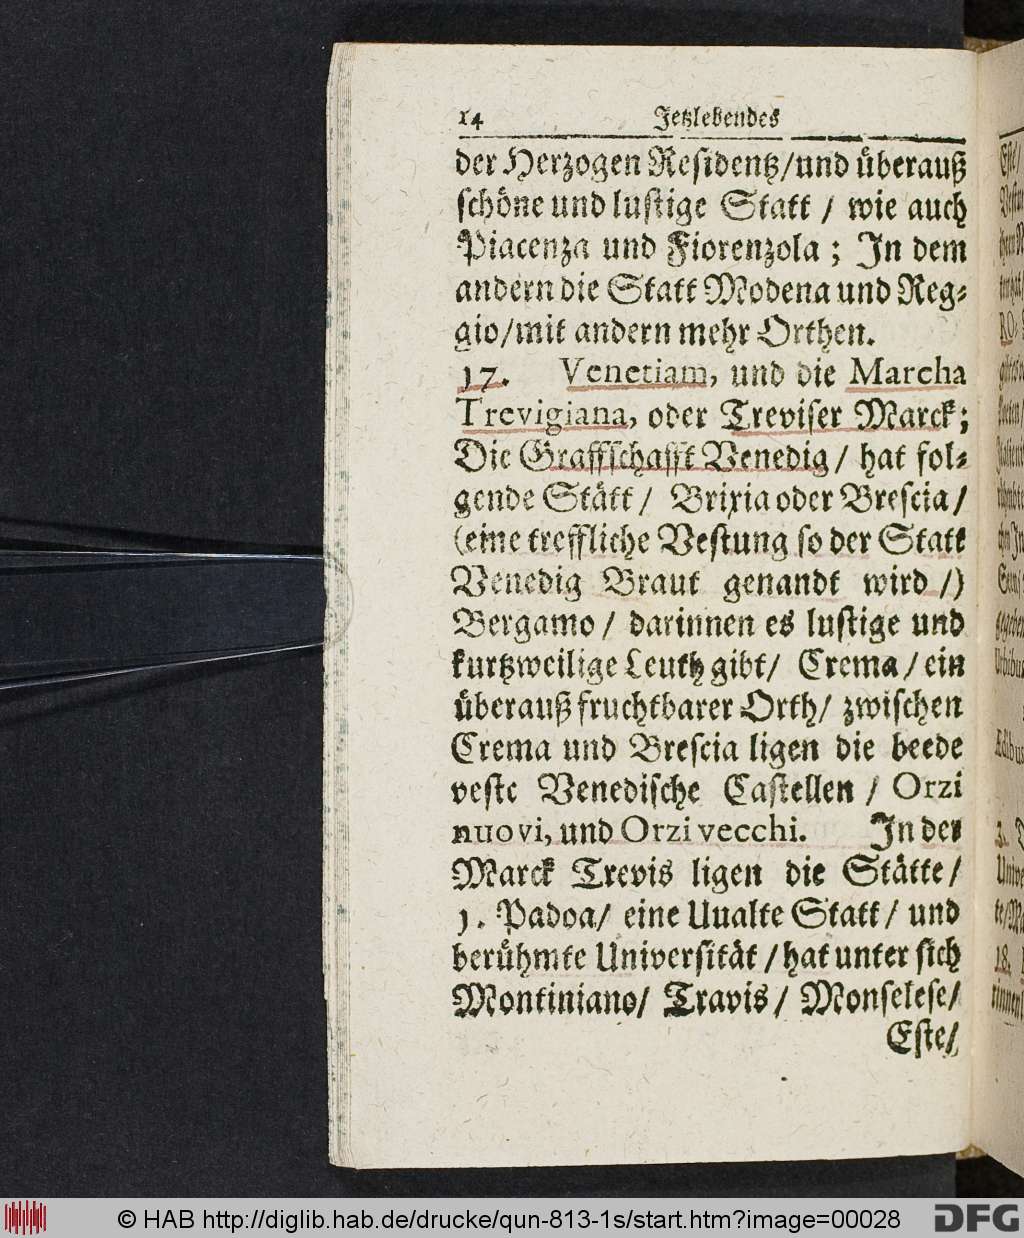 14 Jetzlebendes
der Herzogen Residentz/und überauß
schöne und lustige Statt / wie auch
Piacenza und Fiorenzola ; In dem
andern die Statt Modena und Reg-
gio/mit andern mehr Orthen.
17. Venetiam, und die Marcha
Trevigiana, oder Treviser Marck;
Die Graffschafft Venedig / hat fol-
gende Stätt / Brixia oder Brescia /
(eine treffliche Vestung so der Statt
Venedig Braut genandt wird /)
Bergamo / darinnen es lustige und
kurtzweilige Leuth gibt / Crema / ein
überauß fruchtbarer Orth / zwischen
Crema und Brescia ligen die beede
veste Venedische Castellen / Orzi
nuovi, und Orzi vecchi. In der
Marck Trevis ligen die Stätte /
1. Padoa / eine Uualte Statt / und
berühmte Universität / hat unter sich
Montiniano / Travis / Monselese /
Este /
© HAB http://diglib.hab.de/drucke/qun-813-1s/start.htm?image=00028
DFG